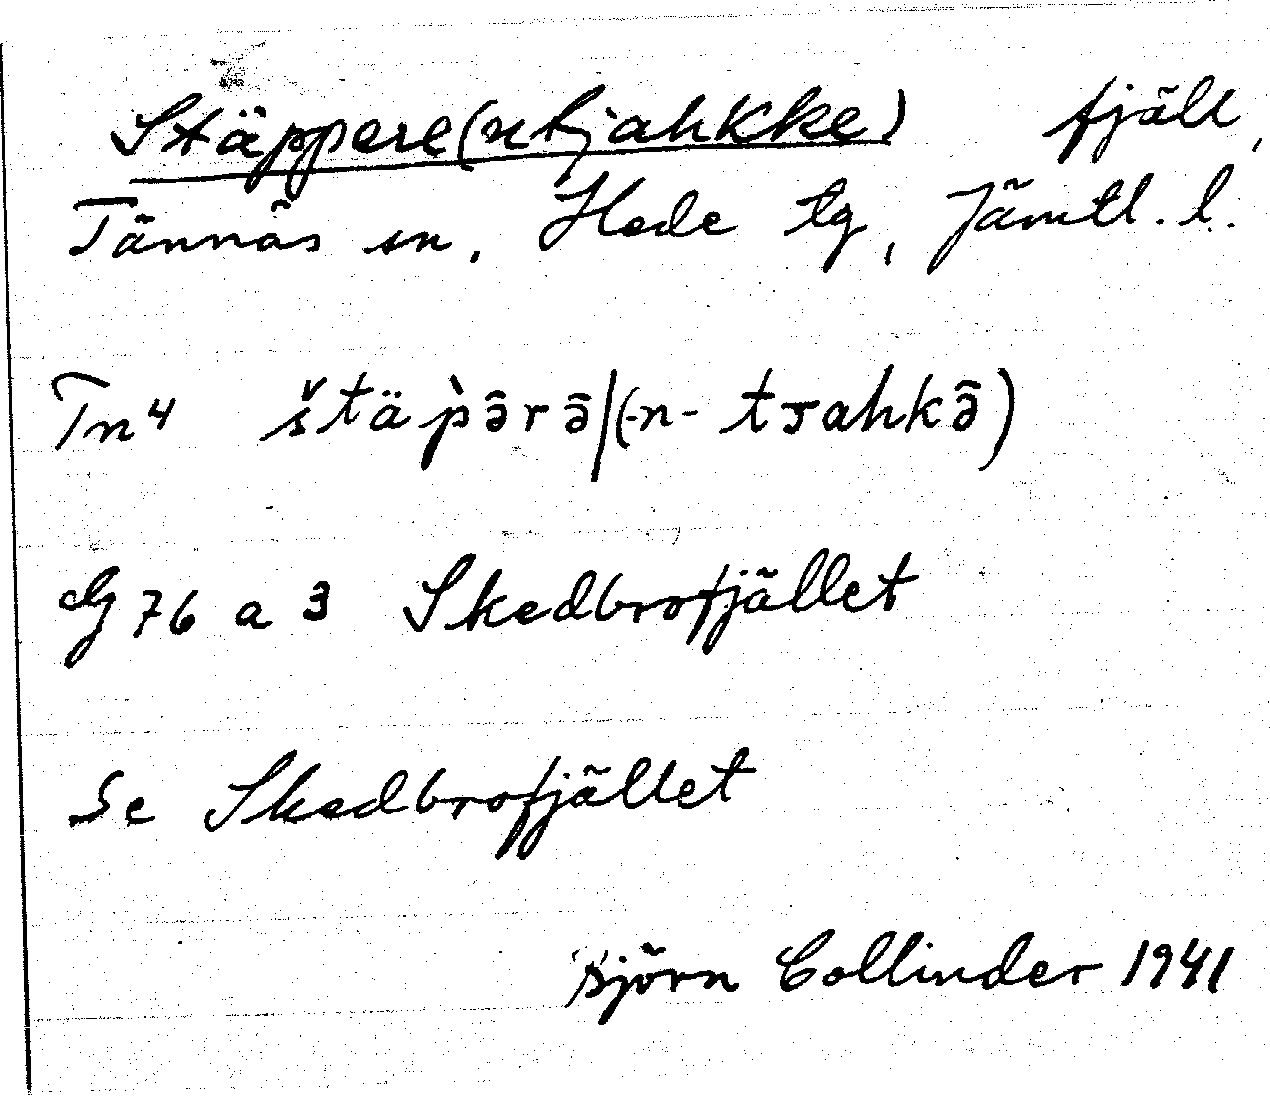 Stäppere(ntjahkke) fjäll,
Tännäs sn, Hede tg, Jämtl. l.
Tn⁴ štäp̀ə̄rə̄/(-n- tjahkə̄)
G 76 a 3 Skedbrofjället
Se Skedbrofjället
Björn Collinder 1941